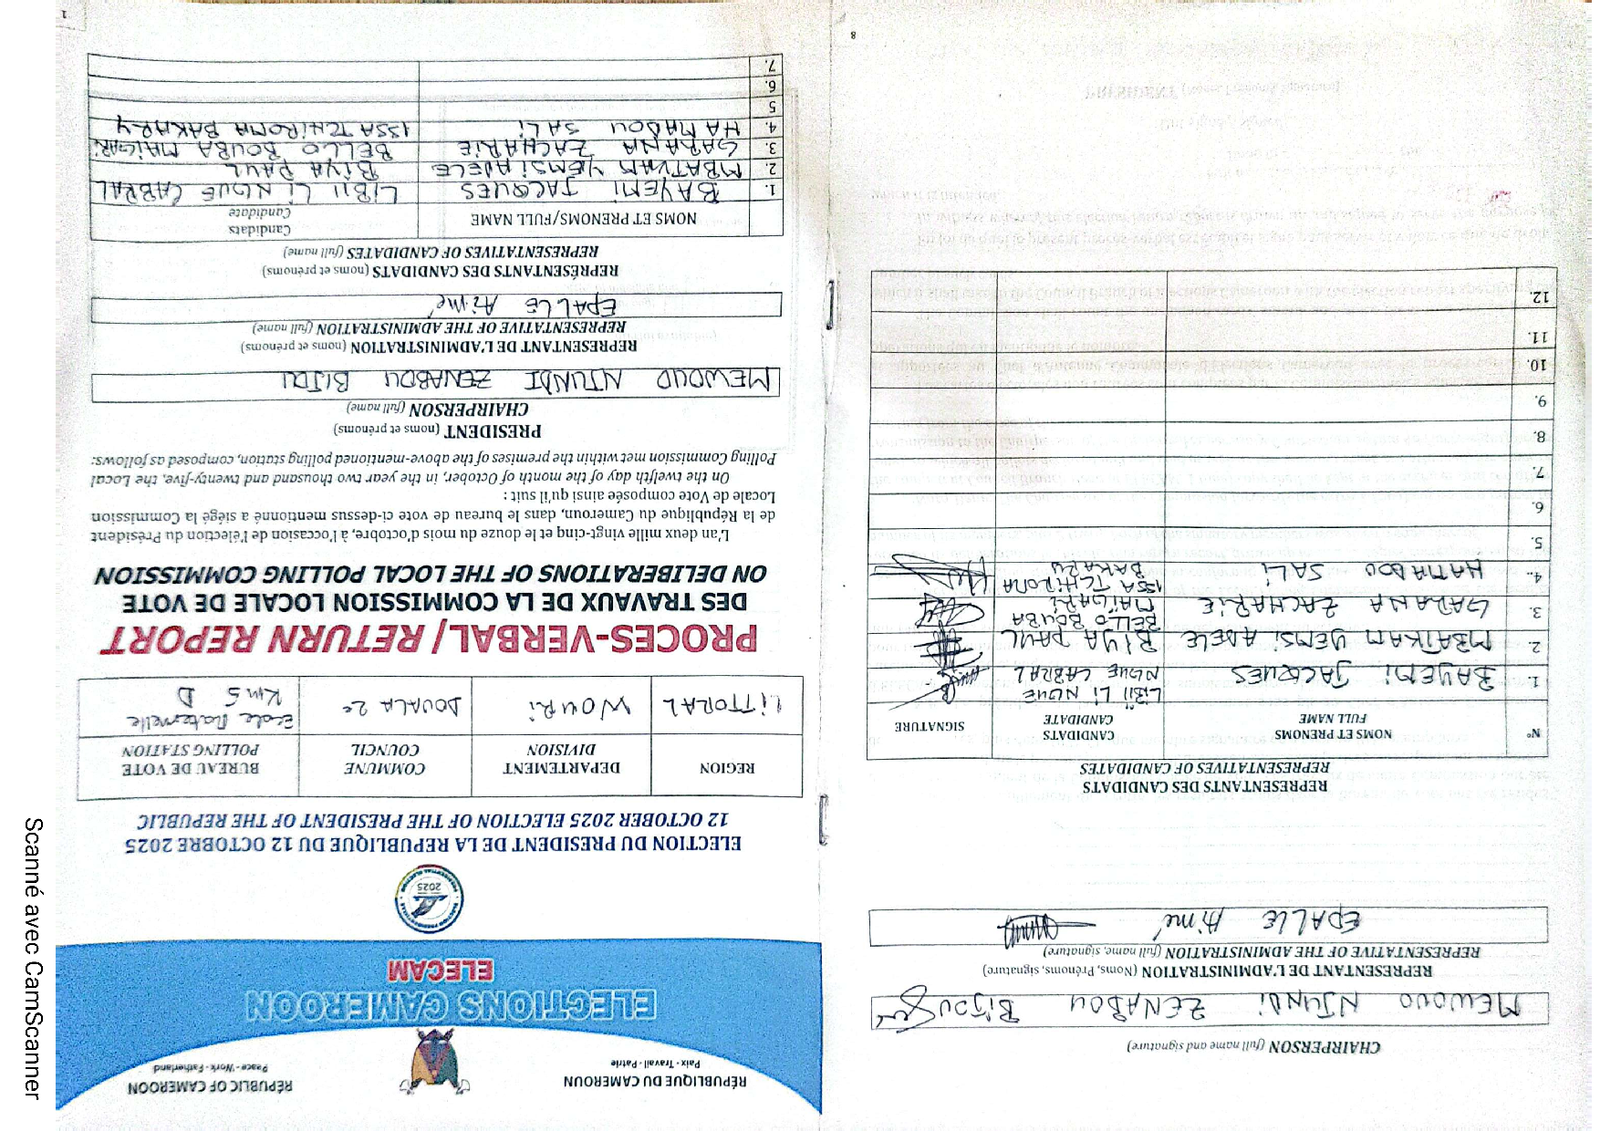 RÉPUBLIQUE DU CAMEROUN
Paix - Travail - Patrie
RÉPUBLIC OF CAMEROON
Peace - Work - Fatherland
ELECTIONS CAMEROON
ELECAM
2025
ELECTION DU PRESIDENT DE LA REPUBLIQUE DU 12 OCTOBRE 2025
12 OCTOBER 2025 ELECTION OF THE PRESIDENT OF THE REPUBLIC
REGION DEPARTEMENT DIVISION COMMUNE COUNCIL BUREAU DE VOTE POLLING STATION
LITTORAL WOURI DOUALA 2e Ecole Maternelle Km 5 D
PROCES-VERBAL/ RETURN REPORT
DES TRAVAUX DE LA COMMISSION LOCALE DE VOTE
ON DELIBERATIONS OF THE LOCAL POLLING COMMISSION
L'an deux mille vingt-cinq et le douze du mois d'octobre, à l'occasion de l'élection du Président
de la République du Cameroun, dans le bureau de vote ci-dessus mentionné a siégé la Commission
Locale de Vote composée ainsi qu'il suit :
On the twelfth day of the month of October, in the year two thousand and twenty-five, the Local
Polling Commission met within the premises of the above-mentioned polling station, composed as follows:
PRESIDENT (noms et prénoms)
CHAIRPERSON (full name)
MEWOUO NJUNDI ZENABOU BIJOU
REPRESENTANT DE L'ADMINISTRATION (noms et prénoms)
REPRESENTATIVE OF THE ADMINISTRATION (full name)
EPALLE Aimé
REPRÉSENTANTS DES CANDIDATS (noms et prénoms)
REPRESENTATIVES OF CANDIDATES (full name)
NOMS ET PRENOMS/FULL NAME Candidats Candidate
1. BAYEMI JACQUES LIBII LI NGUE CABRAL
2. MBATKAM YEMSI ADELE BIYA PAUL
3. GARANA ZACHARIE BELLO BOUBA MAIGARI
4. HAMADOU SALI ISSA TCHIROMA BAKARY
5
6.
7.
1
CHAIRPERSON (full name and signature)
MEWOUO NJUNDI ZENABOU BIJOU
REPRESENTANT DE L'ADMINISTRATION (Noms, Prénoms, signature)
REPRESENTATIVE OF THE ADMINISTRATION (full name, signature)
EPALLE Aimé
REPRESENTANTS DES CANDIDATS
REPRESENTATIVES OF CANDIDATES
N° NOMS ET PRENOMS FULL NAME CANDIDATS CANDIDATE SIGNATURE
1. BAYEMI JACQUES LIBII LI NGUE NGUE CABRAL
2. MBATKAM YEMSI ADELE BIYA PAUL
3. GARANA ZACHARIE BELLO BOUBA MAIGARI
4. HAMADOU SALI ISSA TCHIROMA BAKARY
5.
6.
7.
8.
9.
10.
11.
12.
8
Scanné avec CamScanner